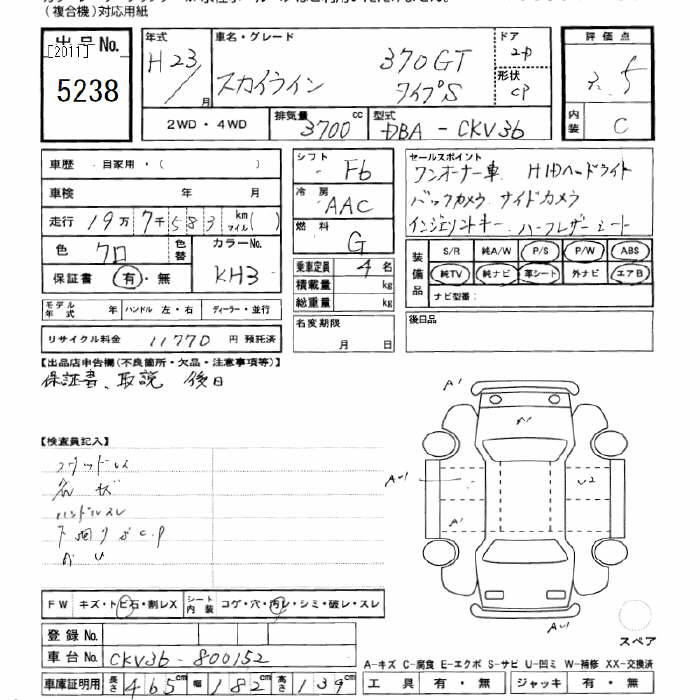 (複合機)対応用紙
出品No.
[2011]
5238
年式 H23/ 月
車名・グレード スカイライン 370GT タイプS
ドア 2D
形状 CP
評価点 3.5
内装 C
2WD・4WD
排気量 3700 cc
型式 DBA-CKV36
車歴 自家用・( )
車検 年 月
走行 19万7千583 km マイル( )
色 クロ
色替
カラーNo. KH3
保証書 有・無
シフト F6
冷房 AAC
燃料 G
乗車定員 4名
積載量 kg
総重量 kg
名変期限 月 日
セールスポイント
ワンオーナー車 HIDヘッドライト
バックカメラ サイドカメラ
インジェリントキー ハーフレザーシート
装備品
S/R 純A/W P/S P/W ABS
純TV 純ナビ 革シート 外ナビ エアB
ナビ型番:
後日品
モデル年式 年 ハンドル 左・右 ディーラー・並行
リサイクル料金 11770 円 預託済
【出品店申告欄(不良箇所・欠品・注意事項等)】
保証書、取説 後日
【検査員記入】
ハンドルスレ
下回り
FW キズ・トビ石・割レX
シート内装 コゲ・穴・汚レ・シミ・破レ・スレ
登録No.
車台No. CKV36-800152
車庫証明用 長さ 465 cm 幅 182 cm 高さ 139 cm
A'
A'
AU
U2
A'
AU
スペア
A-キズ C-腐食 E-エクボ S-サビ U-凹ミ W-補修 XX-交換済
工具 有・無 ジャッキ 有・無